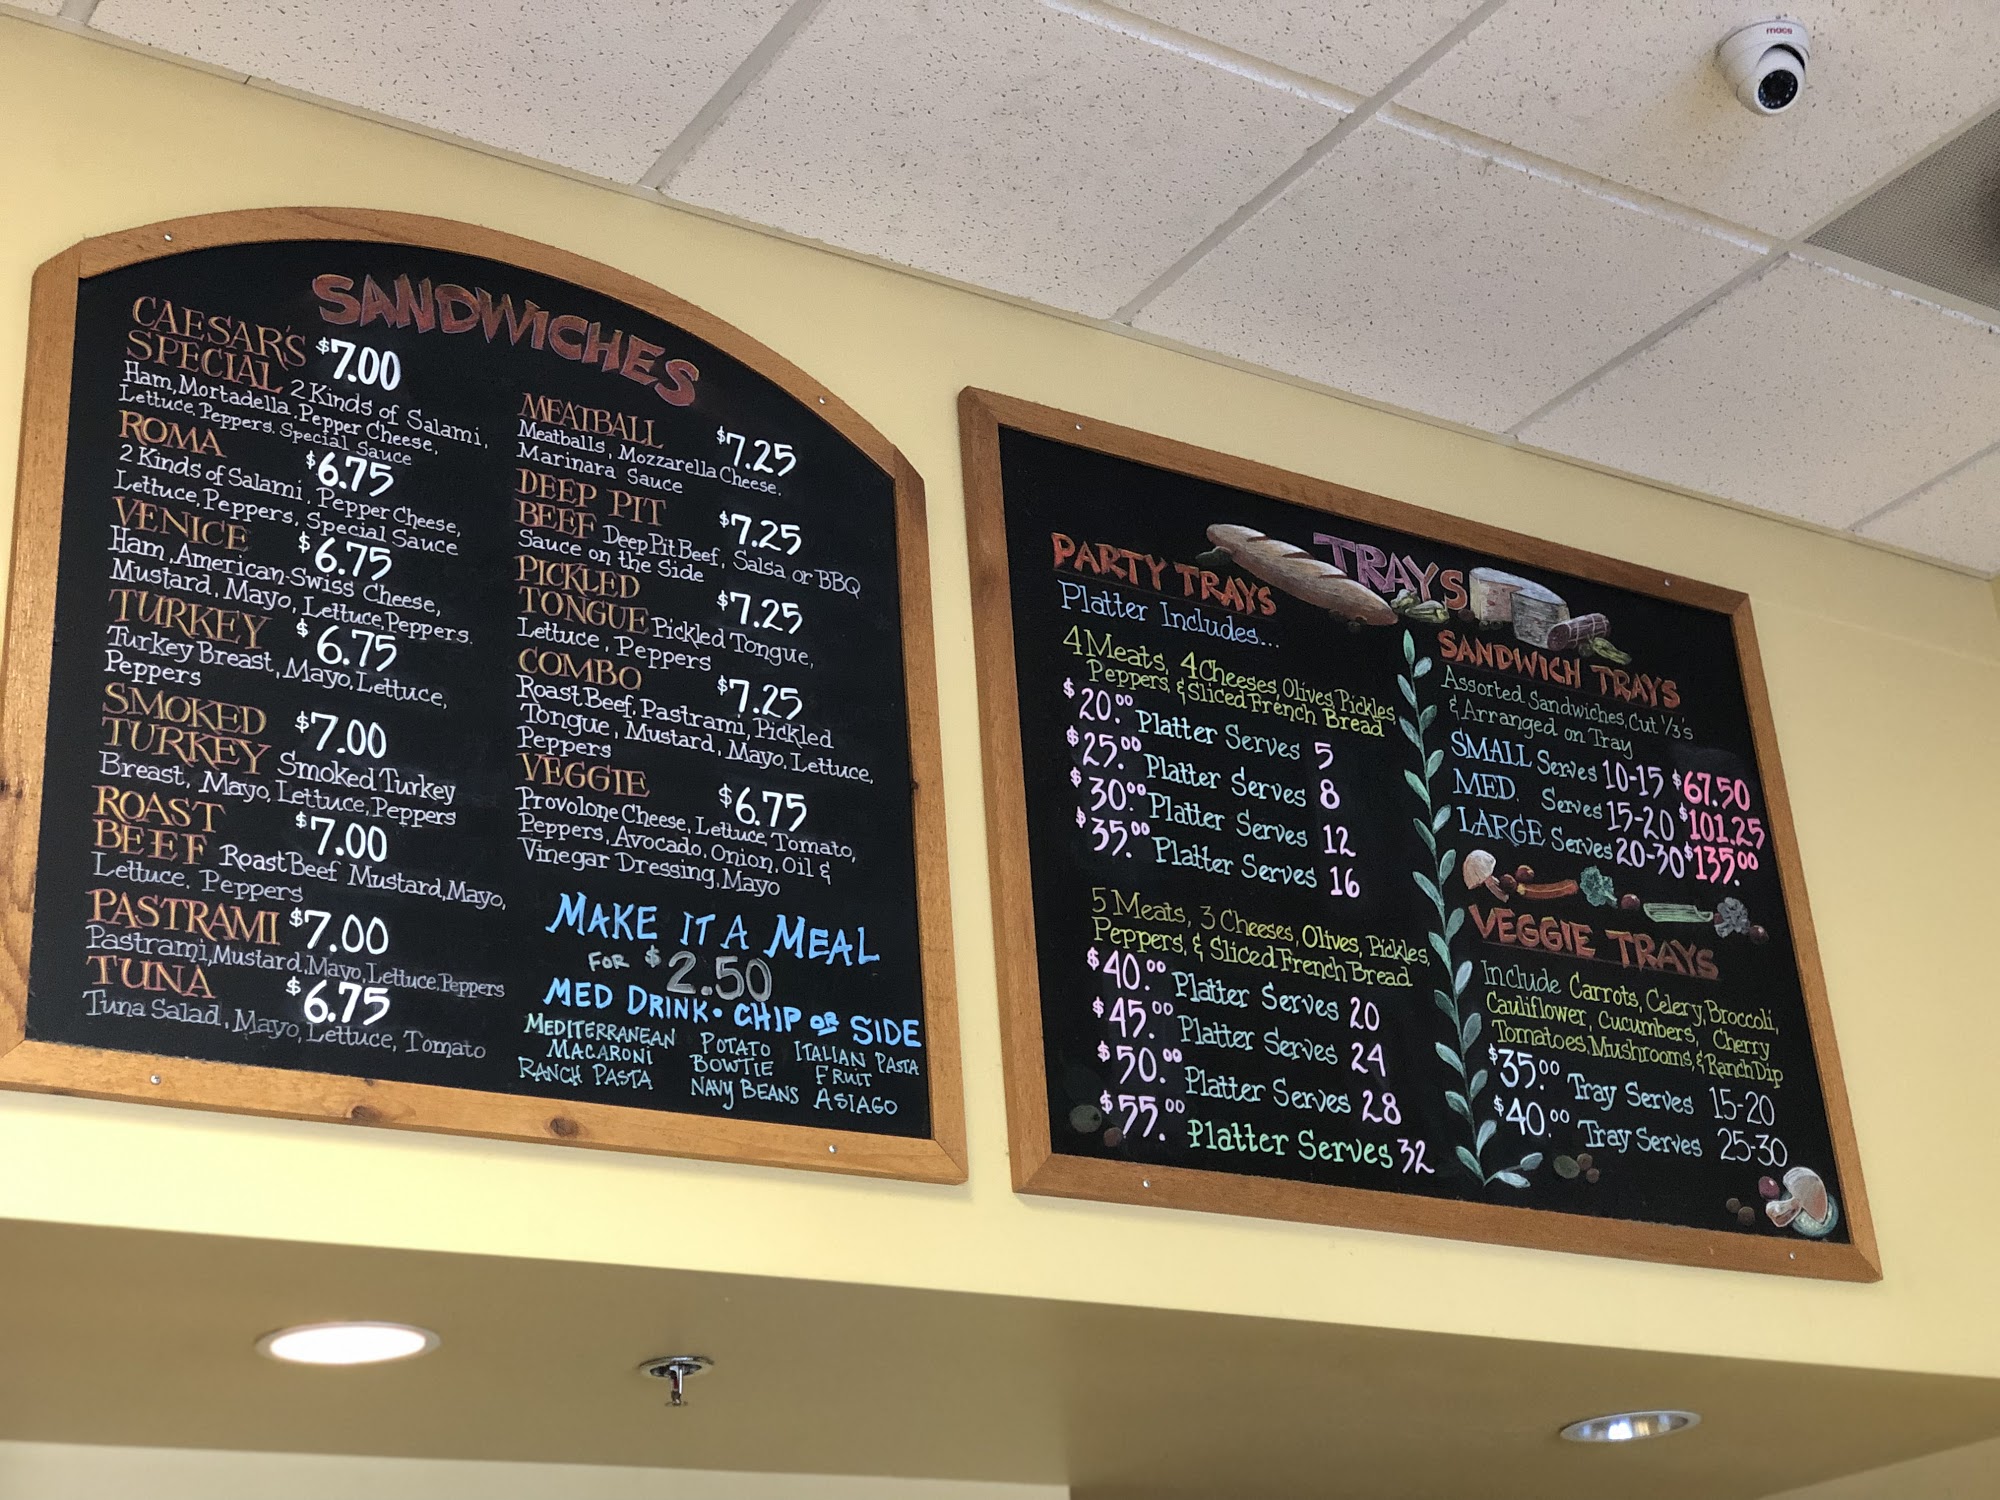 macs
SANDWICHES
CAESAR'S
SPECIAL $7.00
2 Kinds of Salami,
Ham, Mortadella, Pepper Cheese,
Lettuce, Peppers, Special Sauce
ROMA $6.75
2 Kinds of Salami, Pepper Cheese,
Lettuce, Peppers, Special Sauce
VENICE $6.75
Ham, American-Swiss Cheese,
Mustard, Mayo, Lettuce, Peppers.
TURKEY $6.75
Turkey Breast, Mayo, Lettuce,
Peppers
SMOKED $7.00
TURKEY Smoked Turkey
Breast, Mayo, Lettuce, Peppers
ROAST $7.00
BEEF Roast Beef Mustard, Mayo,
Lettuce, Peppers
PASTRAMI $7.00
Pastrami, Mustard, Mayo, Lettuce, Peppers
TUNA $6.75
Tuna Salad, Mayo, Lettuce, Tomato
MEATBALL $7.25
Meatballs, Mozzarella Cheese,
Marinara Sauce
DEEP PIT $7.25
BEEF Deep Pit Beef, Salsa or BBQ
Sauce on the Side
PICKLED $7.25
TONGUE Pickled Tongue,
Lettuce, Peppers
COMBO $7.25
Roast Beef, Pastrami, Pickled
Tongue, Mustard, Mayo, Lettuce,
Peppers
VEGGIE $6.75
Provolone Cheese, Lettuce, Tomato,
Peppers, Avocado, Onion, Oil &
Vinegar Dressing, Mayo
MAKE IT A MEAL
FOR $2.50
MED DRINK • CHIP OR SIDE
MEDITERRANEAN POTATO ITALIAN PASTA
MACARONI BOWTIE FRUIT
RANCH PASTA NAVY BEANS ASIAGO
TRAYS
PARTY TRAYS
Platter Includes...
4 Meats, 4 Cheeses, Olives, Pickles,
Peppers, & Sliced French Bread
$20.00 Platter Serves 5
$25.00 Platter Serves 8
$30.00 Platter Serves 12
$35.00 Platter Serves 16
5 Meats, 3 Cheeses, Olives, Pickles,
Peppers, & Sliced French Bread
$40.00 Platter Serves 20
$45.00 Platter Serves 24
$50.00 Platter Serves 28
$55.00 Platter Serves 32
SANDWICH TRAYS
Assorted Sandwiches, Cut 1/3's
& Arranged on Tray
SMALL Serves 10-15 $67.50
MED. Serves 15-20 $101.25
LARGE Serves 20-30 $135.00
VEGGIE TRAYS
Include Carrots, Celery, Broccoli,
Cauliflower, Cucumbers, Cherry
Tomatoes, Mushrooms, & Ranch Dip
$35.00 Tray Serves 15-20
$40.00 Tray Serves 25-30